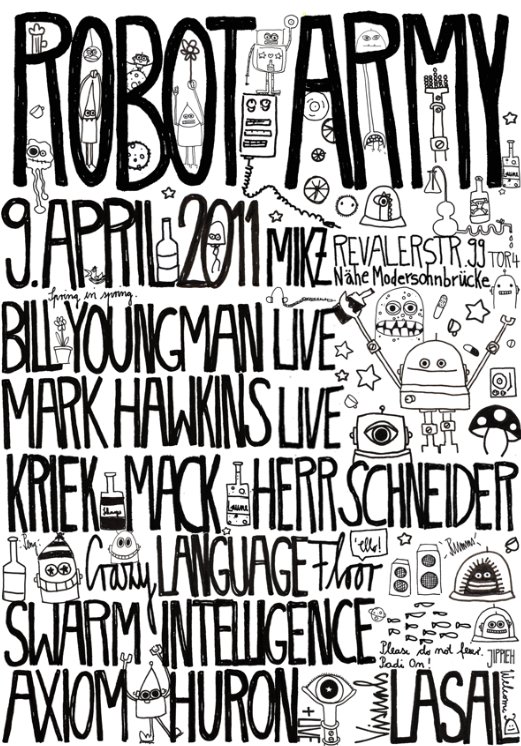 ROBOT ARMY
9. APRIL 2011 MIKZ REVALERSTR. 99 TOR 4
Nähe Modersohnbrücke
Spring in swing.
BILL YOUNGMAN LIVE
MARK HAWKINS LIVE
KRIEK MACK HERR SCHNEIDER
Crazy LANGUAGE Floor
SWARM INTELLIGENCE
Please do not fear.
Badi On!
JIPPIEH
AXIOM HURON + LIVE Visuals LASAL
Welcome